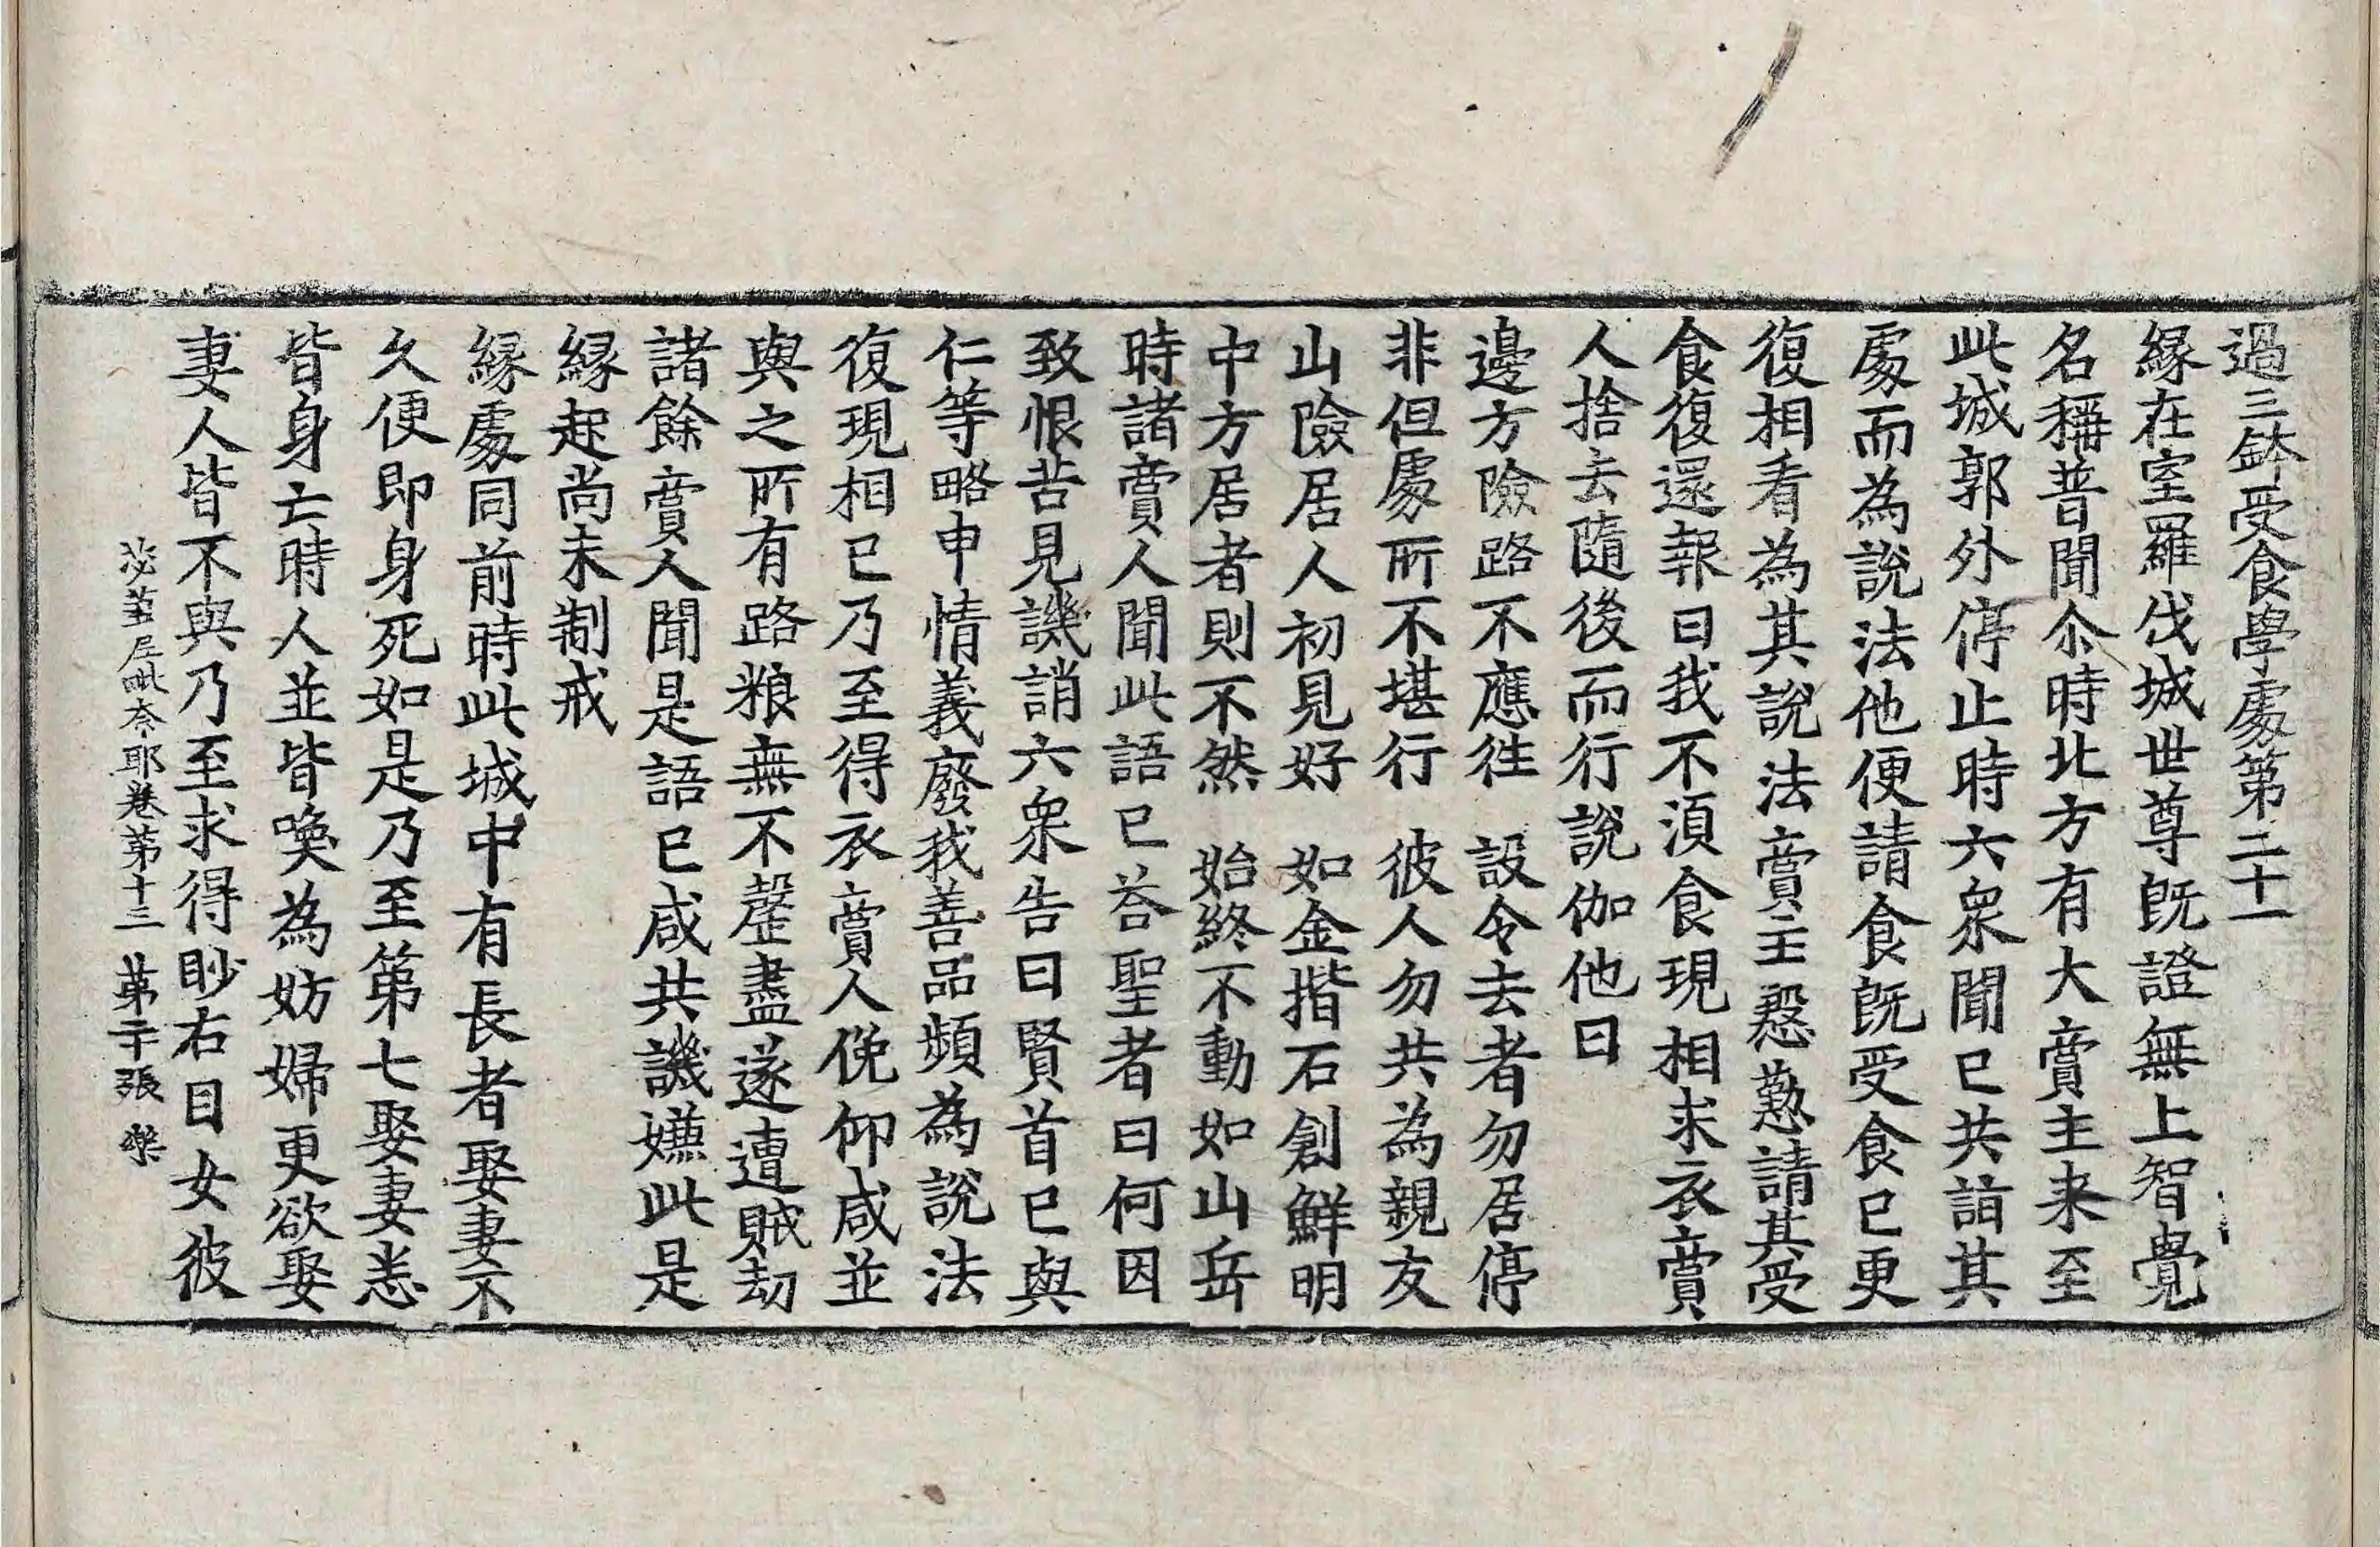 過三鉢受食學處第二十一
緣在室羅伐城世尊旣證無上智覺
名稱普聞尒時北方有大賣主来至
此城郭外停止時六衆聞已共詣其
處而為說法他便請食旣受食已更
復相看為其說法賣主慇懃請其受
食復還報曰我不湏食現相求衣賣
人捨去隨後而行說伽他曰
邊方險路不應往　設令去者勿居停
非但處所不堪行　彼人勿共為親友
山險居人初見好　如金揩石創鮮明
中方居者則不然　始終不動如山岳
時諸賣人聞此語已荅聖者曰何因
致恨苦見譏誚六衆告曰賢首已與
仁等略申情義廢我善品頻為說法
復現相已乃至得衣賣人俛仰咸並
與之所有路粮無不罄盡遂遭賊劫
諸餘賣人聞是語已咸共譏嫌此是
緣起尚未制戒
緣處同前時此城中有長者娶妻不
久便即身死如是乃至第七娶妻悉
皆身亡時人並皆喚為妨婦更欲娶
妻人皆不與乃至求得眇右目女彼
苾蒭尼毗奈耶卷第十三　第二十張　樂